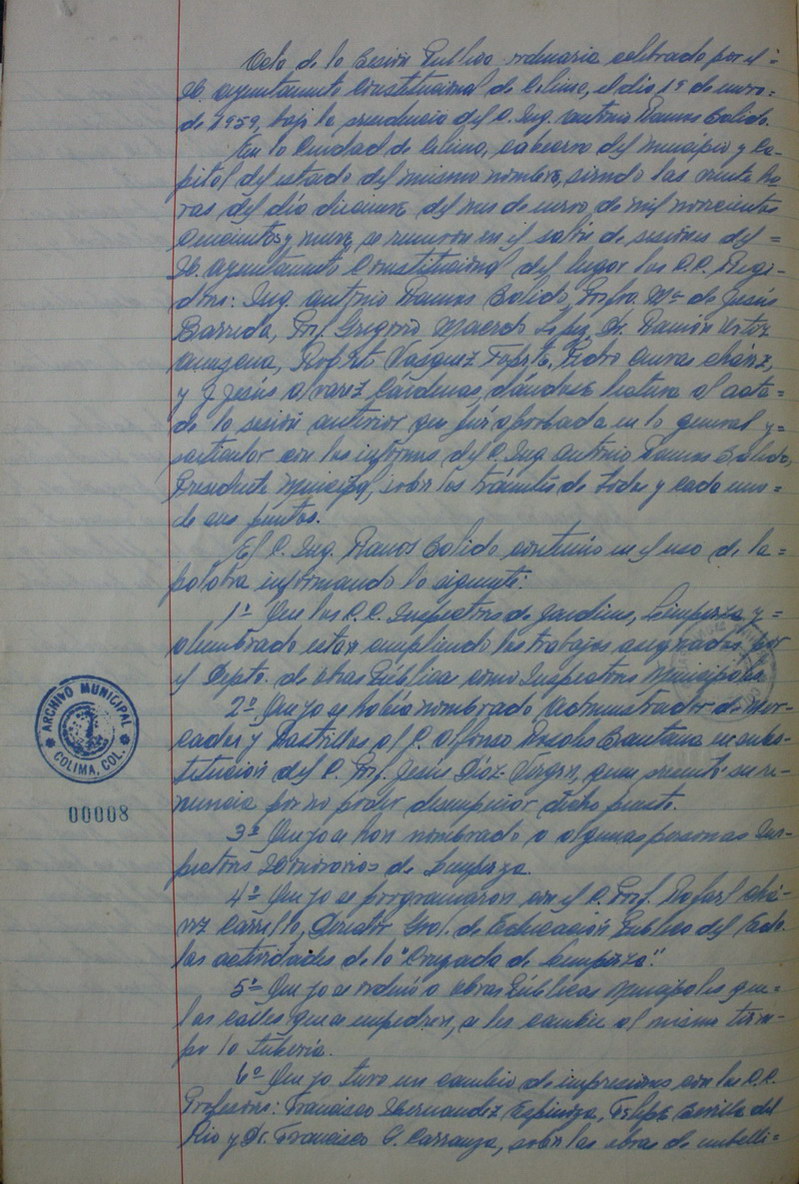 Acta de la Sesión Publica ordinaria celebrada por el =
H. Ayuntamiento Constitucional de Colima, el día 19 de enero =
de 1959, bajo la presidencia del C. Ing. Antonio Ramos Salido.
En la Ciudad de Colima, cabecera del municipio y Ca-
pital del estado del mismo nombre, siendo las veinte ho-
ras del día diecinueve del mes de enero de mil novecientos
cincuenta y nueve, se reunieron en el salón de sesiones del =
H. Ayuntamiento Constitucional del lugar los C.C. Regi-
dores: Ing. Antonio Ramos Salido, Profra. Ma. de Jesús
Barreda, Prof. Gregorio Macedo López, Dr. Ramón
Vasquez Pedro Cuevas Cháv
y J. Jesús Alvarez Cárdenas, dándose lectura al acta =
de la sesión anterior que fué aprobada en lo general y =
particular con los informes del C. Ing. Antonio Ramos Salido,
Presidente Municipal, sobre los trámites de todos y cada uno =
de sus puntos.
El C. Ing. Ramos Salido continúo en el uso de la =
palabra informando lo siguiente:
1º Que los C.C. Inspectores de Jardines, Limpieza y =
alumbrado estan cumpliendo los trabajos asignados por
el Depto. de obras Públicas como Inspectores Municipales
2º Que ya se había nombrado Administrador de Mer-
cados y Rastrillos al C. Alfonso Santana en subs-
titución del C. Prof. Jesús Díaz Virgen, quien presentó su re-
nuncia por no poder desempeñar dicho puesto.
3º Que ya se han nombrado a algunas personas Ins-
pectores Honorarios de Limpieza.
4º Que ya se programaron con el C. Prof. Rafael Chá-
vez Carrillo, Director Gral. de Educación Publica del Edo.
las actividades de la "Cruzada de Limpieza".
5º Que ya se ordenó a obras Públicas Municipales que =
las calles que se empiedren, se les cambie al mismo tiem-
po la tubería.
6º Que ya tuvo un cambio de impresiones con los C.C.
Profesores: Francisco Hernandez Espinoza, Felipe Sevilla del
Rio y Dr. Francisco G. Carranza, sobre las obras de embelli-
ARCHIVO MUNICIPAL
COLIMA, COL.
00008